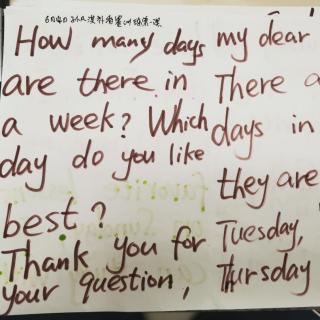 How many days
are there in
a week? Which
day do you like
best?
Thank you for
your question,
my dear
There
days in
they are
Tuesday,
Thursday